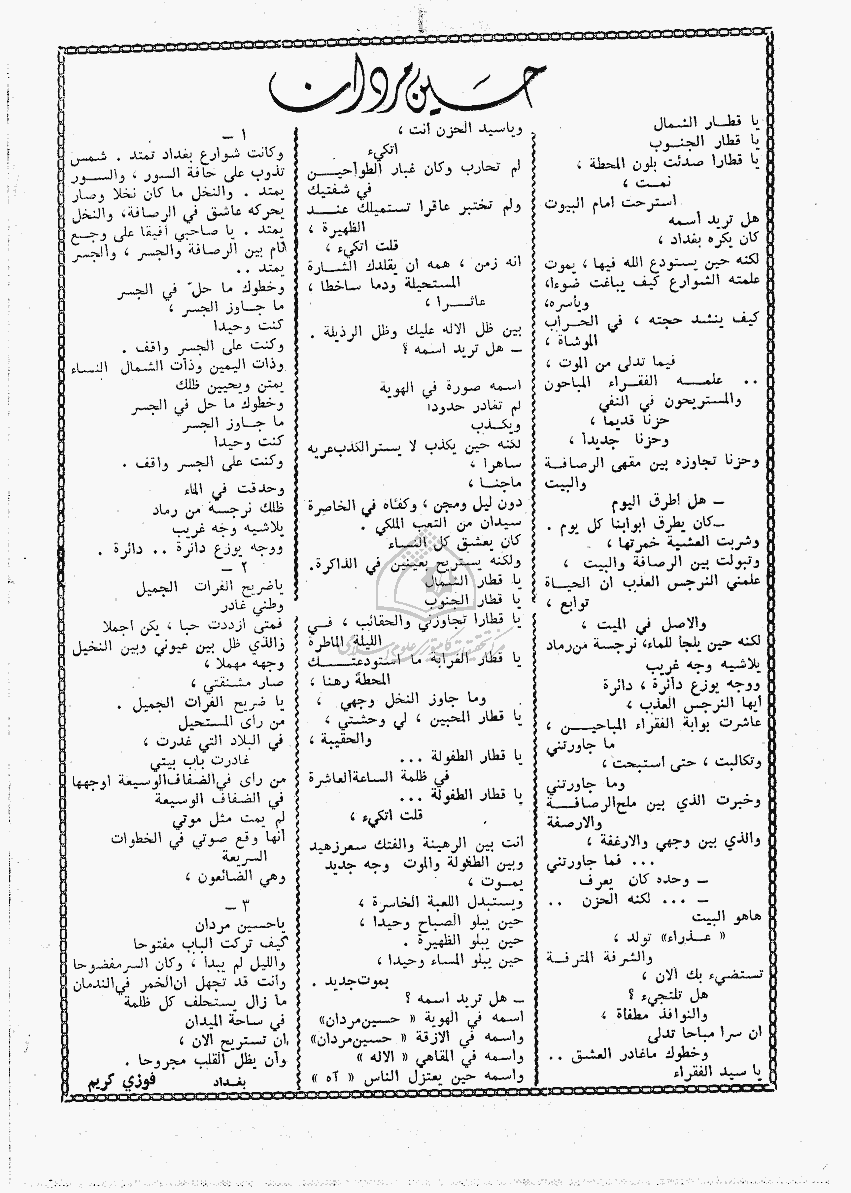 حسين مردان
يا قطار الشمال
يا قطار الجنوب
يا قطارا صدئت بلون المحطة ،
نمت ،
استرحت امام البيوت
هل تريد أسمه
كان يكره بغداد ،
لكنه حين يستودع الله فيها ، يموت
علمته الشوارع كيف يباغت ضوءا،
وياسره،
كيف ينشد حجته ، في الحراب
الموشاة ،
فيما تدلى من الموت ،
.. علمته الفقراء المباحون
والمستريحون في النفي
حزنا قديما ،
وحزنا جديدا ،
وحزنا تجاوزه بين مقهى الرصافة
والبيت
ــ هل اطرق اليوم
ــ كان يطرق ابوابنا كل يوم .
وشربت العشية خمرتها ،
وتبولت بين الرصافة والبيت ،
علمني النرجس العذب ان الحياة
توابع ،
والاصل في الميت ،
لكنه حين يلجأ للماء، نرجسة من رماد
يلاشيه وجه غريب
ووجه يوزع دائرة ، دائرة
أيها النرجس العذب ،
عاشرت بوابة الفقراء المباحين ،
ما جاورتني
وتكالبت ، حتى استبحت ،
وما جاورتني
وخبرت الذي بين ملح الرصافة
والارصفة
والذي بين وجهي والارغفة ،
... فما جاورتني
ــ وحده كان يعرف
ــ ... لكنه الحزن ..
هاهو البيت
« عذراء» تولد ،
والشرفة المترفة
تستضيء بك الان ،
هل تلتجيء ؟
والنوافذ مطفأة ،
ان سرا مباحا تدلى
وخطوك ماغادر العشق ..
يا سيد الفقراء
وياسيد الحزن انت ،
اتكيء
لم تحارب وكان غبار الطواحين
في شفتيك
ولم تختبر عاقرا تستميلك عند
الظهيرة ،
قلت اتكيء ،
انه زمن ، همه ان يقلدك الشارة
المستحيلة ودما ساخطا ،
عاثرا ،
بين ظل الاله عليك وظل الرذيلة .
ــ هل تريد اسمه ؟
اسمه صورة في الهوية
لم تغادر حدودا
ويكذب
لكنه حين يكذب لا يستر الكذب عريه
ساهرا ،
ماجنا ،
دون ليل ومجن ، وكفاه في الخاصرة
سيدان من التعب الملكي .
كان يعشق كل النساء
ولكنه يستريح بعينين في الذاكرة.
يا قطار الشمال
يا قطار الجنوب
يا قطارا تجاوزني والحقائب ، في
الليلة الماطرة
يا قطار القرابة ما استودعتك
المحطة رهنا ،
وما جاوز النخل وجهي ،
يا قطار المحبين ، لي وحشتي ،
والحقيبة ،
يا قطار الطفولة ...
في ظلمة الساعة العاشرة
يا قطار الطفولة ...
قلت اتكيء ،
انت بين الرهينة والفتك سعر زهيد
وبين الطفولة والموت وجه جديد
يموت ،
ويستبدل اللعبة الخاسرة ،
حين يبلو الصباح وحيدا ،
حين يبلو الظهيرة .
حين يبلو المساء وحيدا ،
يموت جديد .
ــ هل تريد اسمه ؟
اسمه في الهوية « حسين مردان»
واسمه في الازقة « حسين مردان»
واسمه في المقاهي « الاله »
واسمه حين يعتزل الناس « آه »
ــ ١
وكانت شوارع بغداد تمتد . شمس
تذوب على حافة السور ، والسور
يمتد . والنخل ما كان نخلا وصار
يحركه عاشق في الرصافة، والنخل
يمتد . يا صاحبي أفيقا على وجع
نام بين الرصافة والجسر ، والجسر
يمتد ..
وخطوك ما حل في الجسر
ما جاوز الجسر ،
كنت وحيدا
وكنت على الجسر واقف .
وذات اليمين وذات الشمال النساء
يمتن ويحيين ظلك
وخطوك ما حل في الجسر
ما جاوز الجسر
كنت وحيدا
وكنت على الجسر واقف .
وحدقت في الماء
ظلك نرجسة من رماد
يلاشيه وجه غريب
ووجه يوزع دائرة .. دائرة .
ــ ٢
ياضريح الفرات الجميل
وطني غادر
فمتى ازددت حبا ، يكن اجملا
والذي ظل بين عيوني وبين النخيل
وجهه مهملا ،
صار مشنقتي ،
يا ضريح الفرات الجميل .
من راى المستحيل
في البلاد التي غدرت ،
غادرت باب بيتي
من راى في الضفاف الوسيعة اوجهها
في الضفاف الوسيعة
لم يمت مثل موتي
انها وقع صوتي في الخطوات
السريعة
وهي الضائعون ،
ــ ٣
ياحسين مردان
كيف تركت الباب مفتوحا
والليل لم يبدأ ، وكان السر مفضوحا
وانت قد تجهل ان الخمر في الندمان
ما زال يستحلف كل ظلمة
في ساحة الميدان
ان تستريح الان ،
وأن يظل القلب مجروحا .
بغداد فوزي كريم